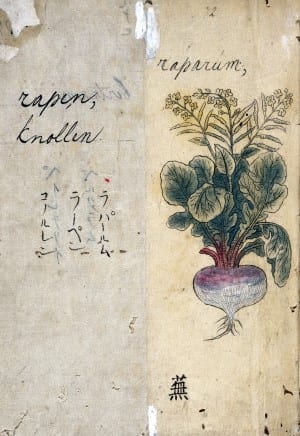 raparum,
rapen,
knollen.
ラパールム
ラーペン
コノルレン
蕪